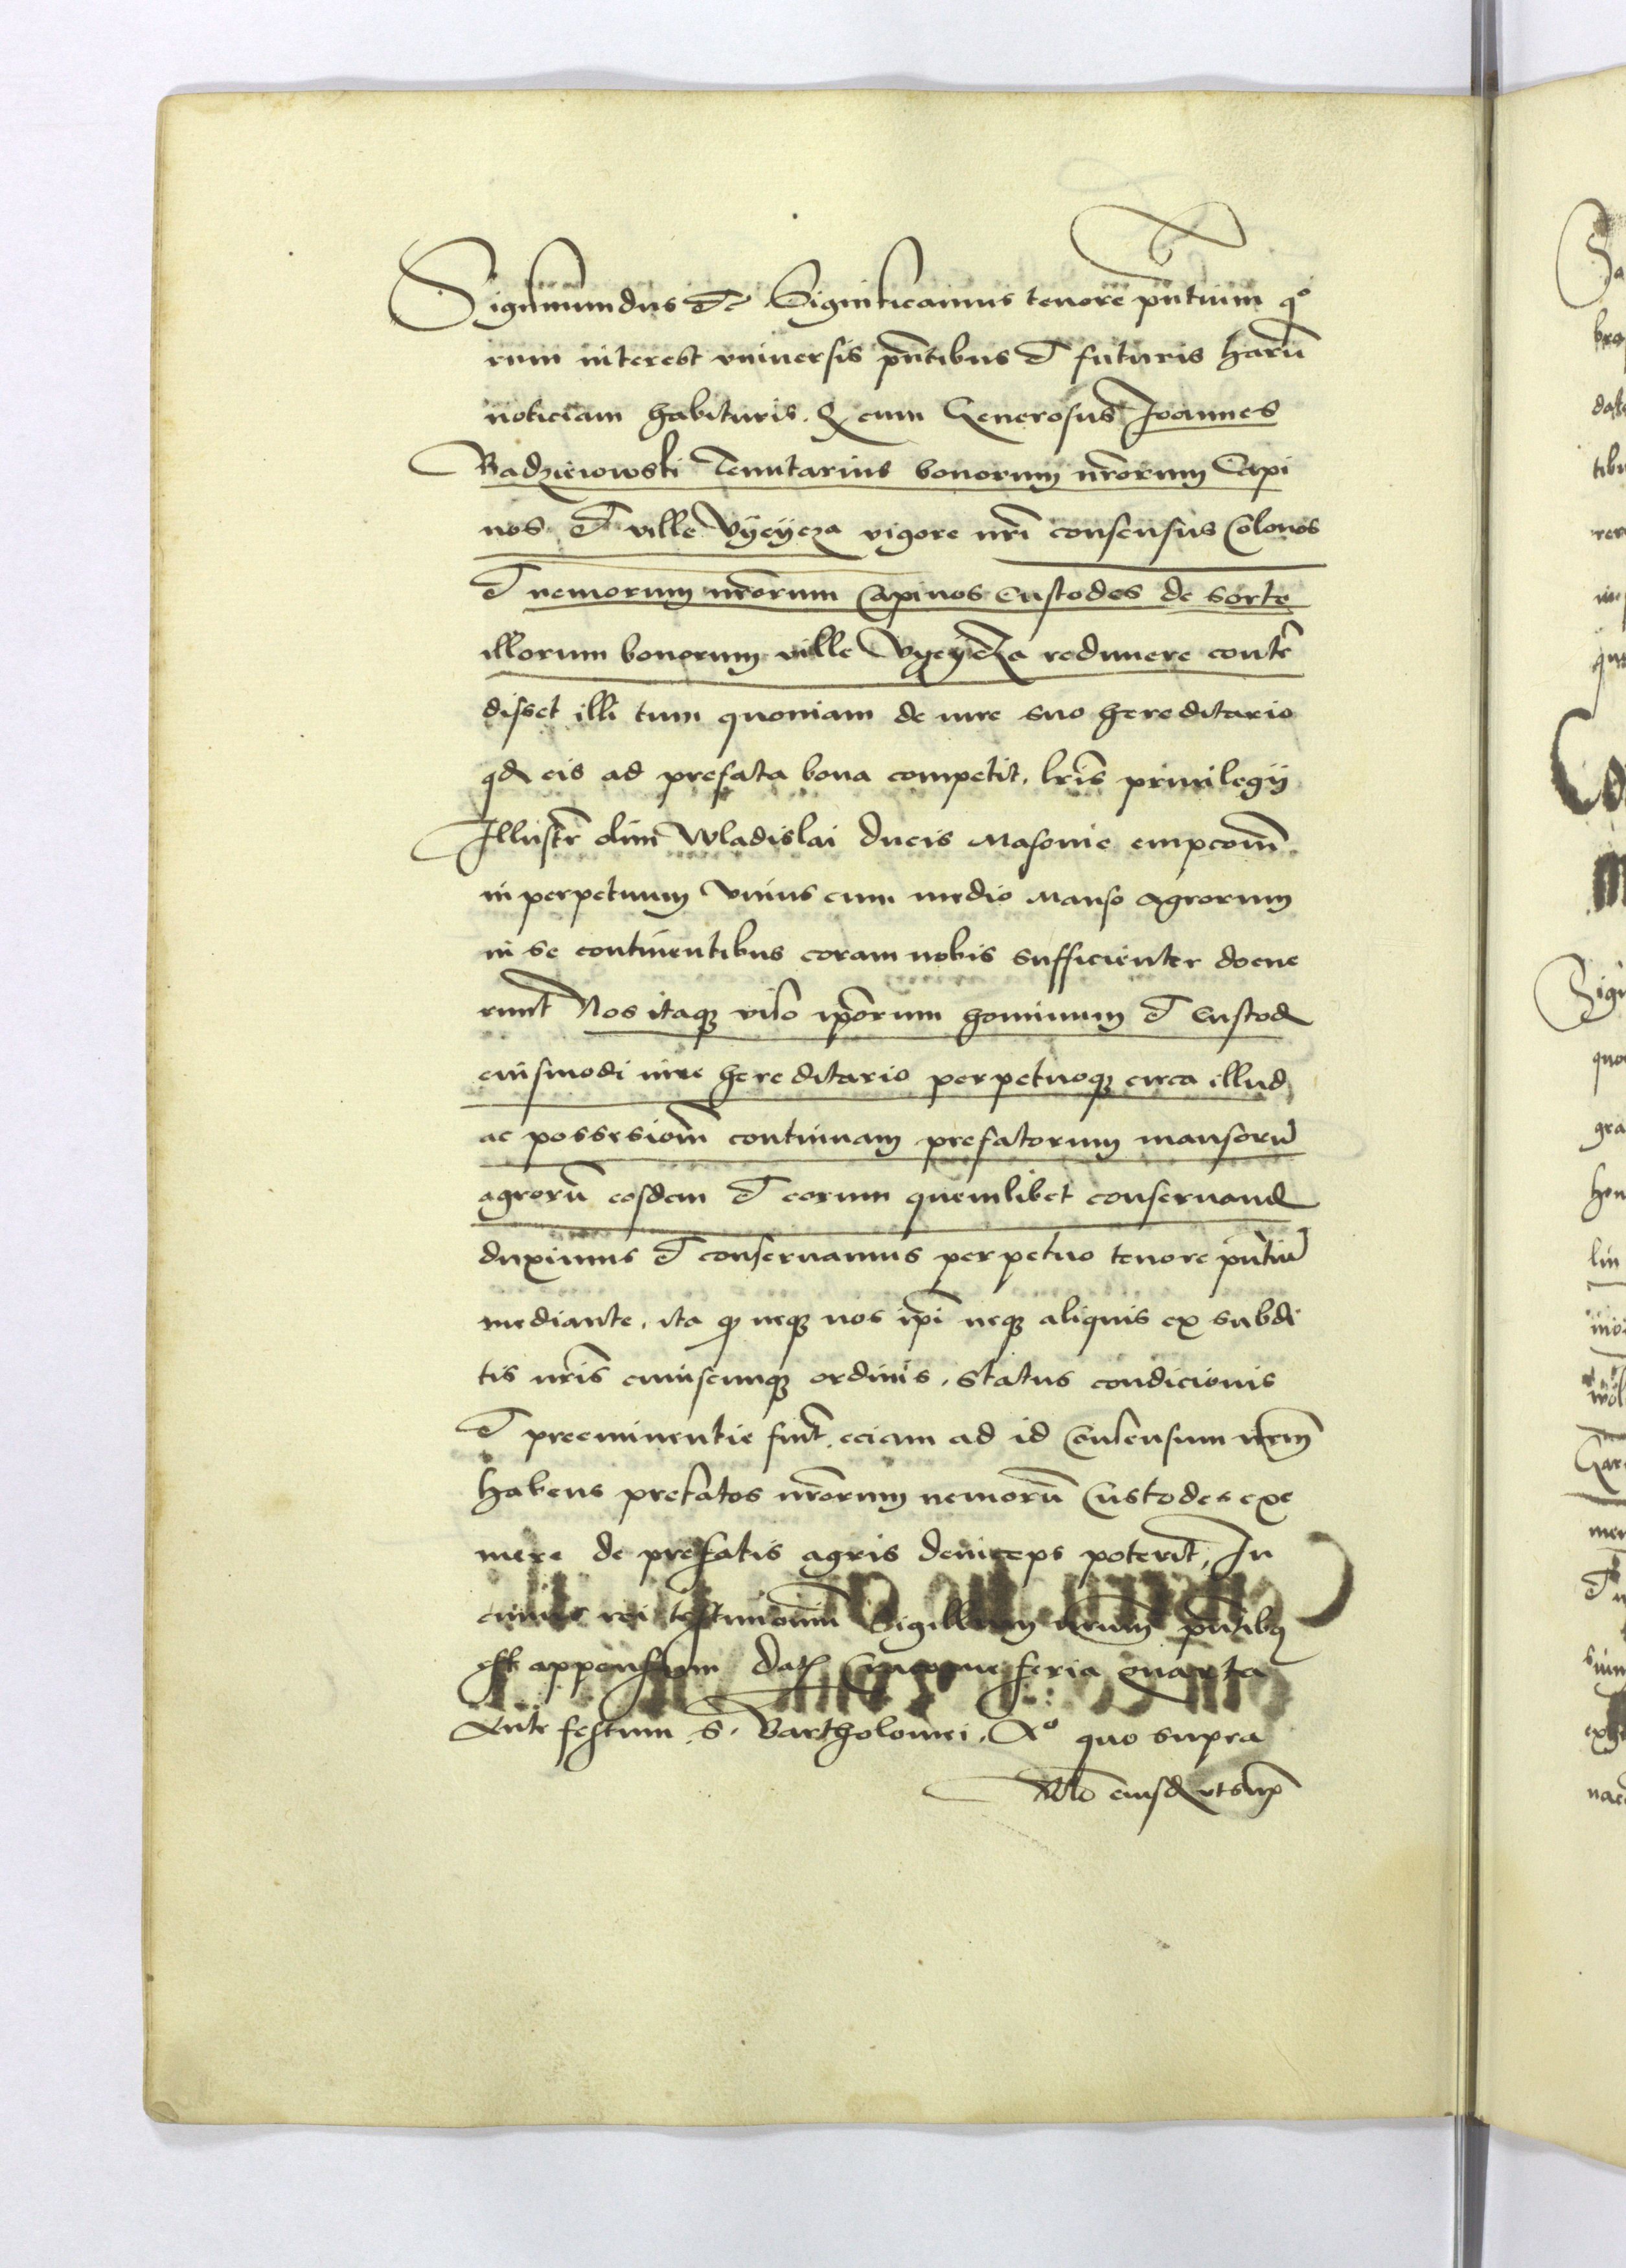 Sigismundus etc Significamus tenore pntium qo
rum interest vniuersis pntibus et futuris harū
noticiam habituris. Q cum Generosus Joannes
Radzieiowski Tenutarius bonorum nrorum Capi
nos et ville Vyeyeza vigore nri consensus Colonos
et nemorum nrorum Capinos Custodes de sorte
illorum bonorum ville Vyeyeza redimere conte
disset illi tum quoniam de iure suo hereditario
qd eis ad prefata bona competit. lris priuilegij
Illustr olim Wladislai ducis Masouie empcom
in perpetuum vnius cum medio Manso Agrorum
in se continentibus coram nobis sufficienter docue
runt Nos itaq viso ipsorum hominum et Custod
eiusmodi iure hereditario perpetuoq circa illud
ac possesiom continuam prefatorum mansorū
agrorū eosdem et eorum quemlibet conseruand
duximus et conseruamus perpetuo tenore pntiū
mediante. ita q neq nos ipi neq aliquis ex subdi
tis nris cuiuscunq ordinis. status condicionis
et preeminentie sint. eciam ad id Consensum nrm
habens prefatos nrorum nemorū Custodes exi
mere de prefatis agris deinceps poterit. In
cuius rei testimonium Sigillum nrum pntibq
est appensum Dat Cracouie feria quarta
Ante festum S. Bartholomei. Ao quo supra
Rlo eiusd vt sup
Sa
bro
dat
tibu
Sigi
quo
gra
hon
lin
mo
wol
Gar
men